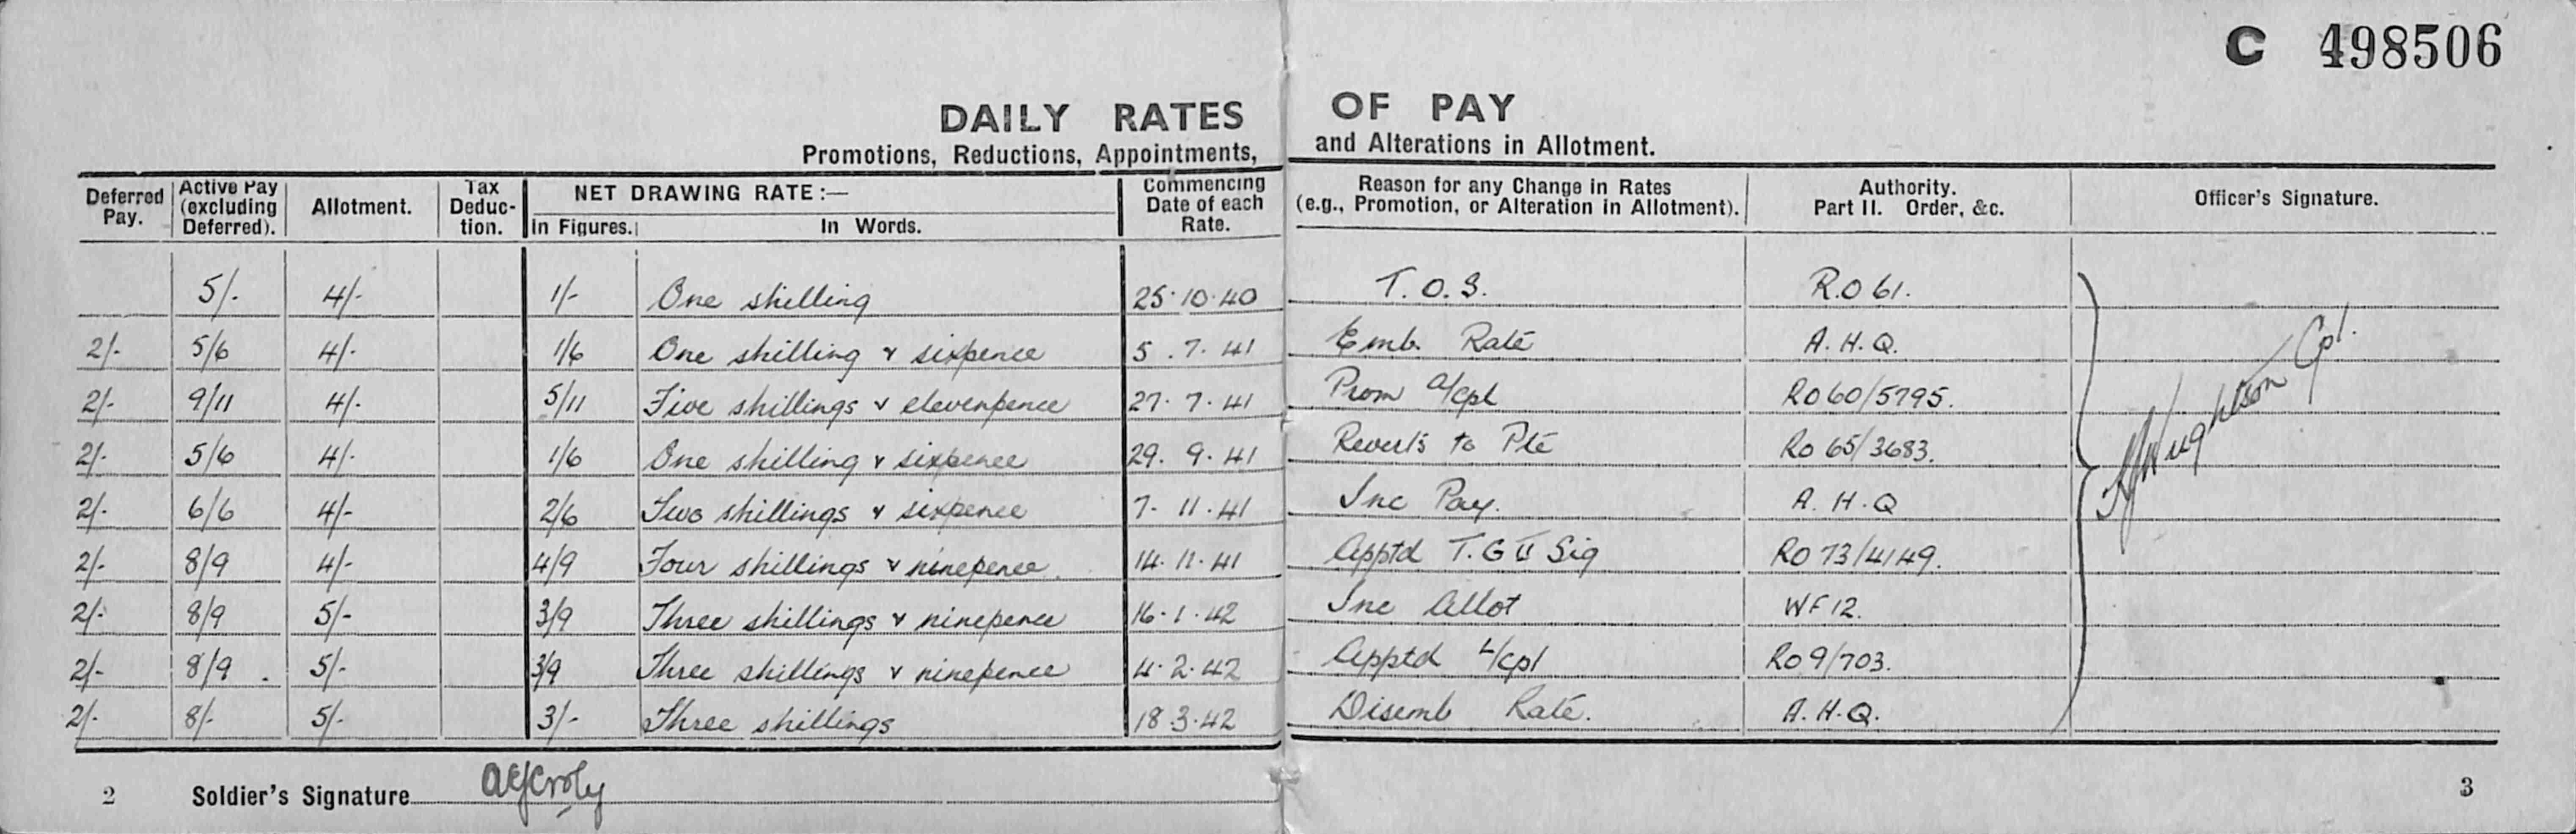 C 498506
DAILY RATES OF PAY
Promotions, Reductions, Appointments, and Alterations in Allotment.
Deferred Pay. Active Pay (excluding Deferred). Allotment. Tax Deduc-tion. NET DRAWING RATE:— In Figures. In Words. Commencing Date of each Rate. Reason for any Change in Rates (e.g., Promotion, or Alteration in Allotment). Authority. Part II. Order, &c. Officer's Signature.
5/- 4/- 1/- One shilling 25.10.40 T.O.S. R.O 61.
2/- 5/6 4/- 1/6 One shilling & sixpence 5.7.41 Emb. Rate A.H.Q.
2/- 9/11 4/- 5/11 Five shillings & elevenpence 27.7.41 Prom a/cpl RO 60/5795.
2/- 5/6 4/- 1/6 One shilling & sixpence 29.9.41 Reverts to Pte RO 65/3683.
2/- 6/6 4/- 2/6 Two shillings & sixpence 7.11.41 Inc Pay. A.H.Q
2/- 8/9 4/- 4/9 Four shillings & ninepence. 14.11.41 Apptd T.G II Sig RO 73/4149.
2/- 8/9 5/- 3/9 Three shillings & ninepence 16.1.42 Inc Allot WF 12.
2/- 8/9. 5/- 3/9 Three shillings & ninepence 4.2.42 Apptd L/cpl RO 9/703.
2/- 8/- 5/- 3/- Three shillings 18.3.42 Disemb Rate. A.H.Q.
Cpl.
2 Soldier's Signature AGCroly 3